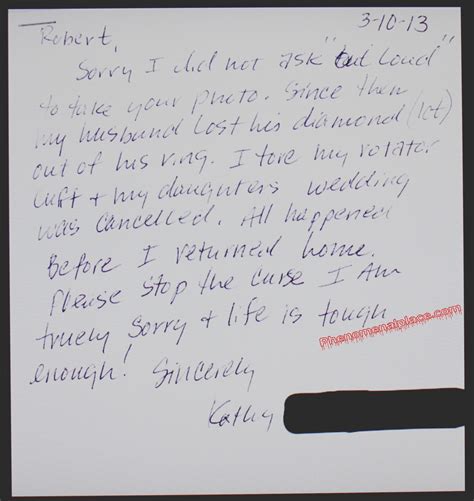 3-10-13
Robert,
Sorry I did not ask "out Loud"
to take your photo. Since then
my husband lost his diamond (1ct)
out of his ring. I tore my rotator
cuff + my daughters wedding
was cancelled. All happened
Before I returned home.
Please stop the curse I Am
truely sorry + life is tough
enough! Sincerely
Kathy
Phenomenalplace.com